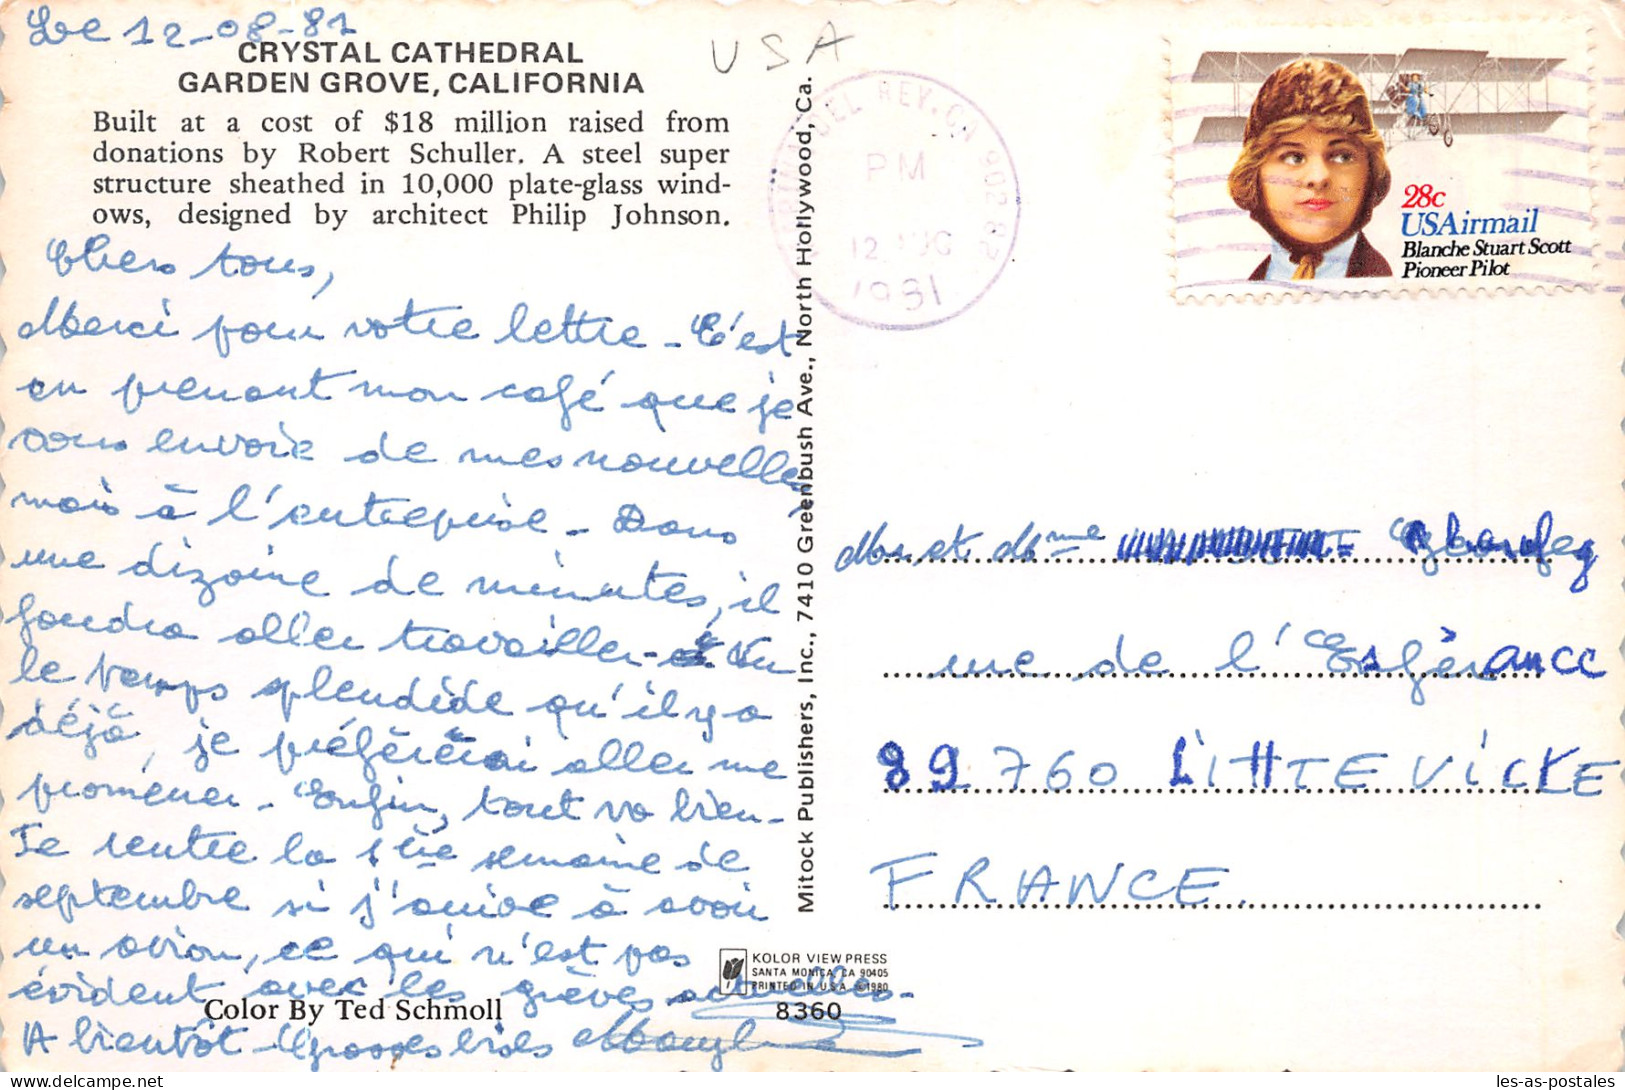 Le 12-08-81
CRYSTAL CATHEDRAL
GARDEN GROVE, CALIFORNIA
Built at a cost of $18 million raised from
donations by Robert Schuller. A steel super
structure sheathed in 10,000 plate-glass wind-
ows, designed by architect Philip Johnson.
Chers tous,
Merci pour votre lettre - C'est
en prenant mon café que je
vous envoie de mes nouvelles
mais à l'entreprise - Dans
une dizaine de minutes, il
faudra aller travailler - Vu
le temps splendide qu'il y a
déjà, je préfèrerai aller me
promener - Enfin, tout va bien -
Je rentre la 1ère semaine de
septembre si j'arrive à avoir
un avion, ce qui n'est pas
évident avec les grèves actuelles -
A bientôt - Grosses bises
Color By Ted Schmoll
Mitock Publishers, Inc., 7410 Greenbush Ave., North Hollywood, Ca.
KOLOR VIEW PRESS
SANTA MONICA, CA 90405
PRINTED IN U.S.A. ©1980
8360
USA
DEL REY, CA 902
PM
12 AUG
1981
28c
USAirmail
Blanche Stuart Scott
Pioneer Pilot
Mr et Mme
rue de l'Espérance
89760 LITTEVICKE
FRANCE
les-as-postales